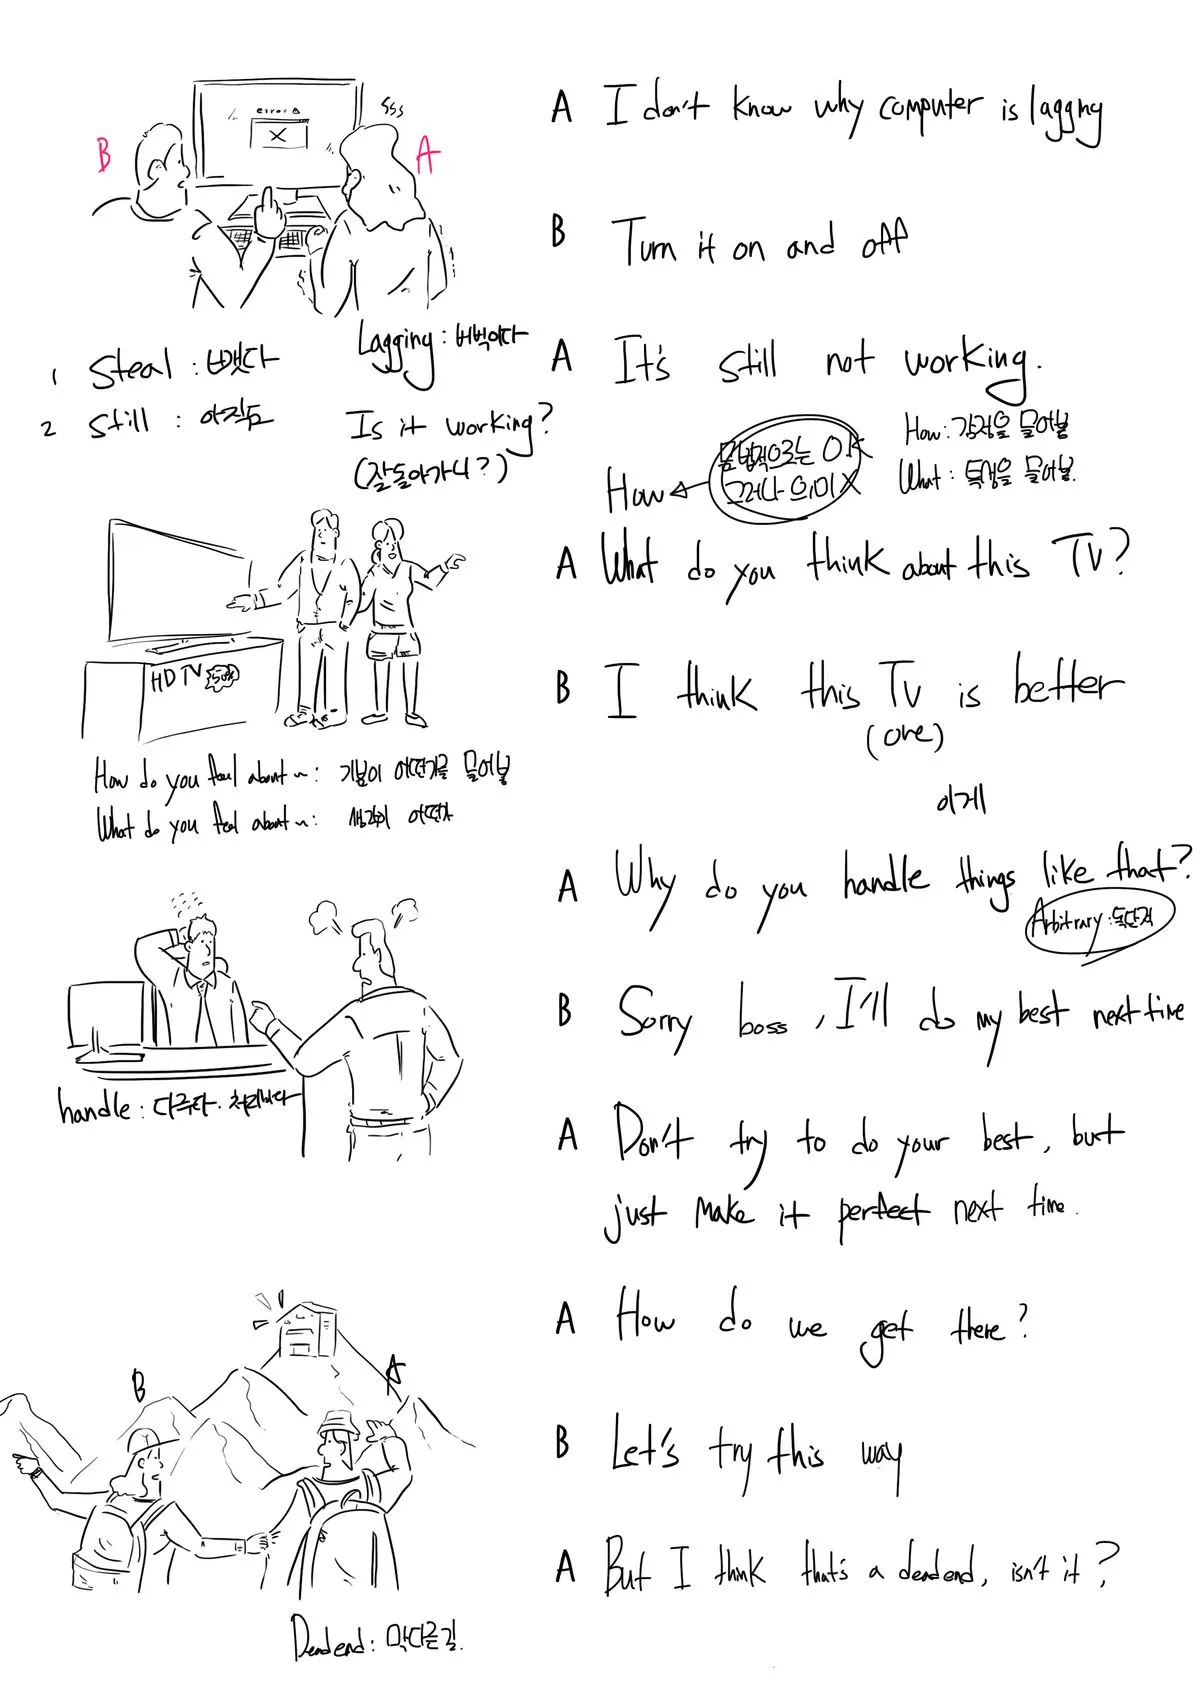 error
X
B
A
A I don't know why computer is lagging
B Turn it on and off
Lagging : 버벅이다
A It's still not working.
1 Steal : 뺏다
2 Still : 아직도
Is it working?
(잘돌아가니?)
How
문법적으로는 OK
그러나 의미 X
How : 감정을 물어봄
What : 특성을 물어봄.
A What do you think about this TV?
HD TV
50%
B I think this TV is better
(one)
이게
How do you feel about ~ : 기분이 어떤가를 물어봄
What do you feel about ~ : 생각이 어떤가
A Why do you handle things like that?
Arbitrary : 독단적
B Sorry boss, I'll do my best next time
handle : 다루다. 처리하다
A Don't try to do your best, but
just make it perfect next time.
A How do we get there?
B
A
B Let's try this way
A But I think that's a deadend, isn't it?
Deadend : 막다른길.